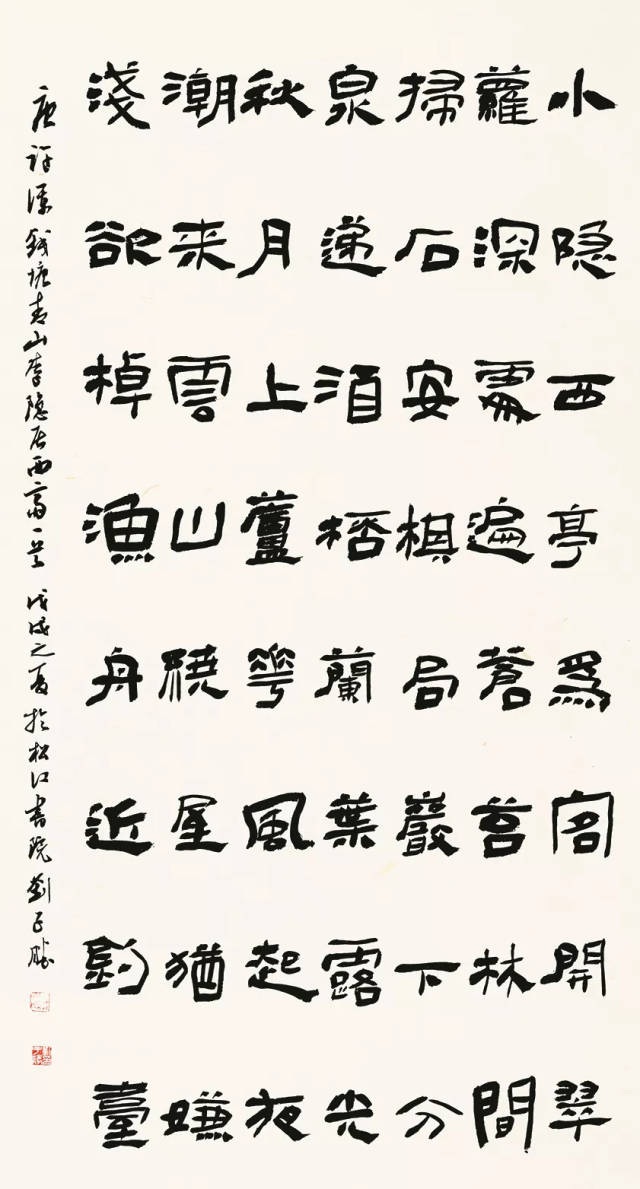 小隐西亭爲客開翠
蘿深處遍蒼苔林間
掃石安棋局巖下分
泉遞酒桮蘭葉露光
秋月上蘆花風起夜
潮来雲山繞屋猶嫌
淺欲棹漁舟近釣臺
唐許渾錢塘青山李隱居西齋一首 戊戌之夏於松江書院劉正